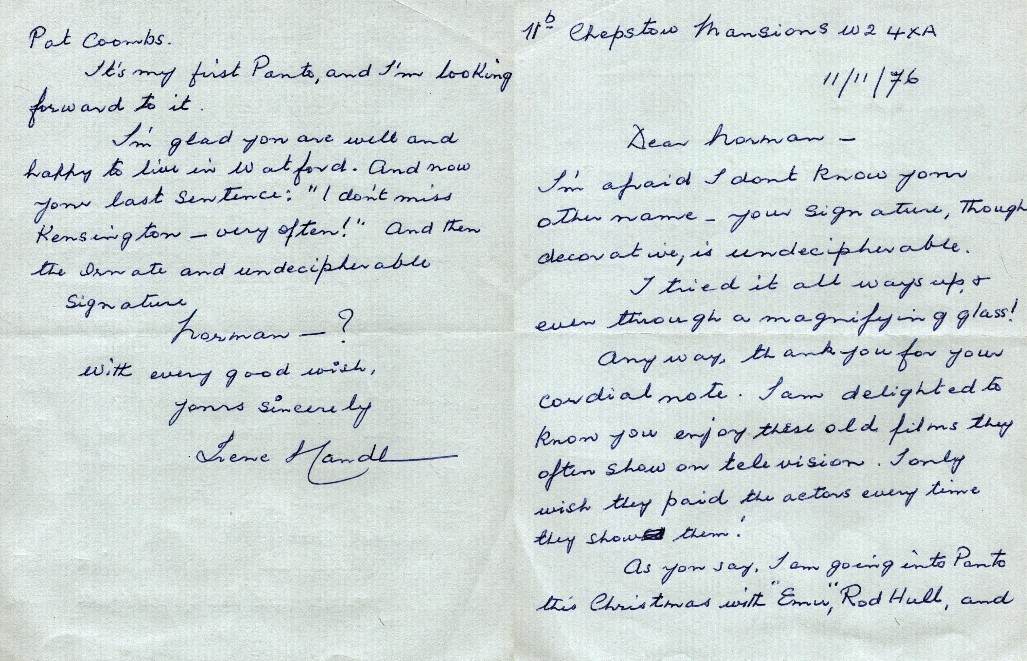 11b Chepstow Mansions W2 4XA
11/11/76
Dear Norman —
I'm afraid I don't know your
other name — your signature, though
decorative, is undecipherable.
I tried it all ways up, &
even through a magnifying glass!
Anyway, thank you for your
cordial note. I am delighted to
know you enjoy these old films they
often show on television. I only
wish they paid the actors every time
they show them!
As you say, I am going into Panto
this Christmas with "Emu", Rod Hull, and
Pat Coombs.
It's my first Panto, and I'm looking
forward to it.
I'm glad you are well and
happy to live in Watford. And now
your last sentence: "I don't miss
Kensington — very often!" And then
the Ornate and undecipherable
signature
Norman — ?
With every good wish,
yours sincerely
Irene Handl